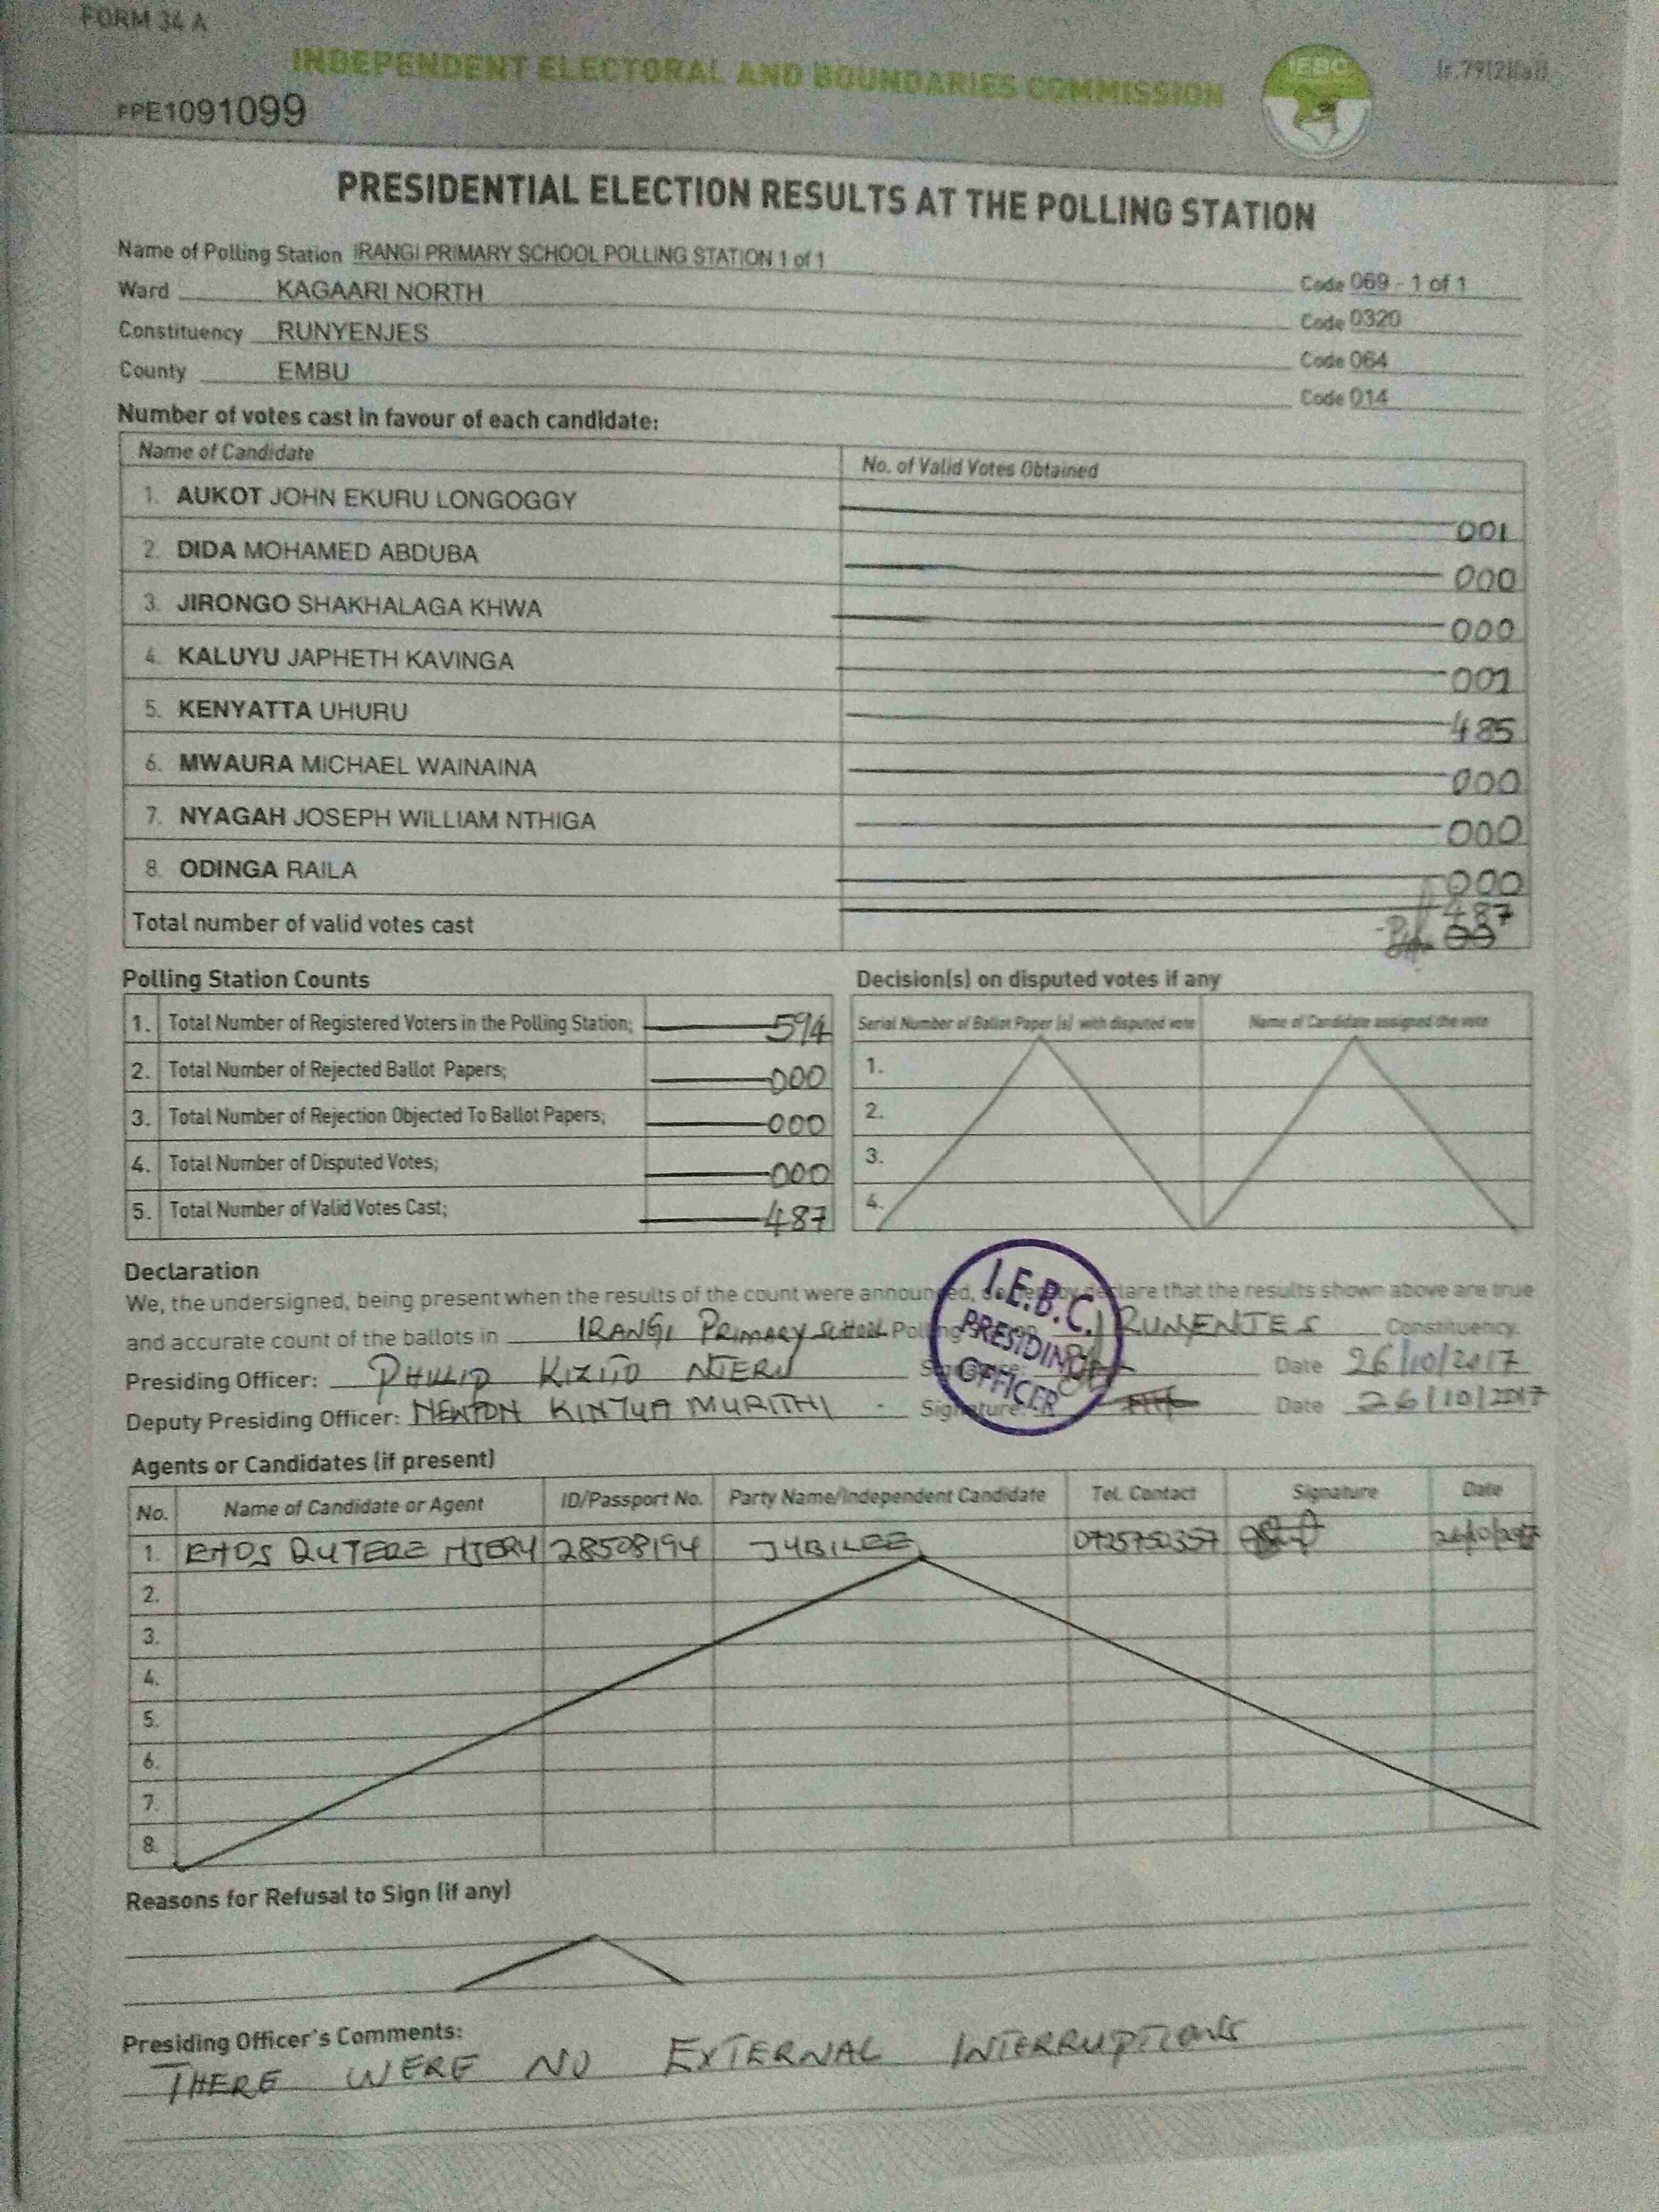 FORM 34 A
INDEPENDENT ELECTORAL AND BOUNDARIES COMMISSION
IEBC
(r.79(2)(a))
FPE1091099
PRESIDENTIAL ELECTION RESULTS AT THE POLLING STATION
Name of Polling Station IRANGI PRIMARY SCHOOL POLLING STATION 1 of 1 Code 069 - 1 of 1
Ward KAGAARI NORTH Code 0320
Constituency RUNYENJES Code 064
County EMBU Code 014
Number of votes cast in favour of each candidate:
Name of Candidate No. of Valid Votes Obtained
1. AUKOT JOHN EKURU LONGOGGY 001
2. DIDA MOHAMED ABDUBA 000
3. JIRONGO SHAKHALAGA KHWA 000
4. KALUYU JAPHETH KAVINGA 001
5. KENYATTA UHURU 485
6. MWAURA MICHAEL WAINAINA 000
7. NYAGAH JOSEPH WILLIAM NTHIGA 000
8. ODINGA RAILA 000
Total number of valid votes cast 487
Polling Station Counts
1. Total Number of Registered Voters in the Polling Station; 594
2. Total Number of Rejected Ballot Papers; 000
3. Total Number of Rejection Objected To Ballot Papers; 000
4. Total Number of Disputed Votes; 000
5. Total Number of Valid Votes Cast; 487
Decision(s) on disputed votes if any
Serial Number of Ballot Paper (s) with disputed vote Name of Candidate assigned the vote
1.
2.
3.
4.
Declaration
We, the undersigned, being present when the results of the count were announced, do hereby declare that the results shown above are true
and accurate count of the ballots in IRANGI PRIMARY SCHOOL Polling RUNYENJES Constituency.
Presiding Officer: PHILIP KIZITO NTERU Signature: Date 26/10/2017
Deputy Presiding Officer: NEWTON KINYUA MURITHI Signature: Date 26/10/2017
I.E.B.C.
PRESIDING
OFFICER
Agents or Candidates (if present)
No. Name of Candidate or Agent ID/Passport No. Party Name/Independent Candidate Tel. Contact Signature Date
1. 28508194 JUBILEE 0725750357 26/10/2017
2.
3.
4.
5.
6.
7.
8.
Reasons for Refusal to Sign (if any)
Presiding Officer's Comments:
THERE WERE NO EXTERNAL INTERRUPTIONS